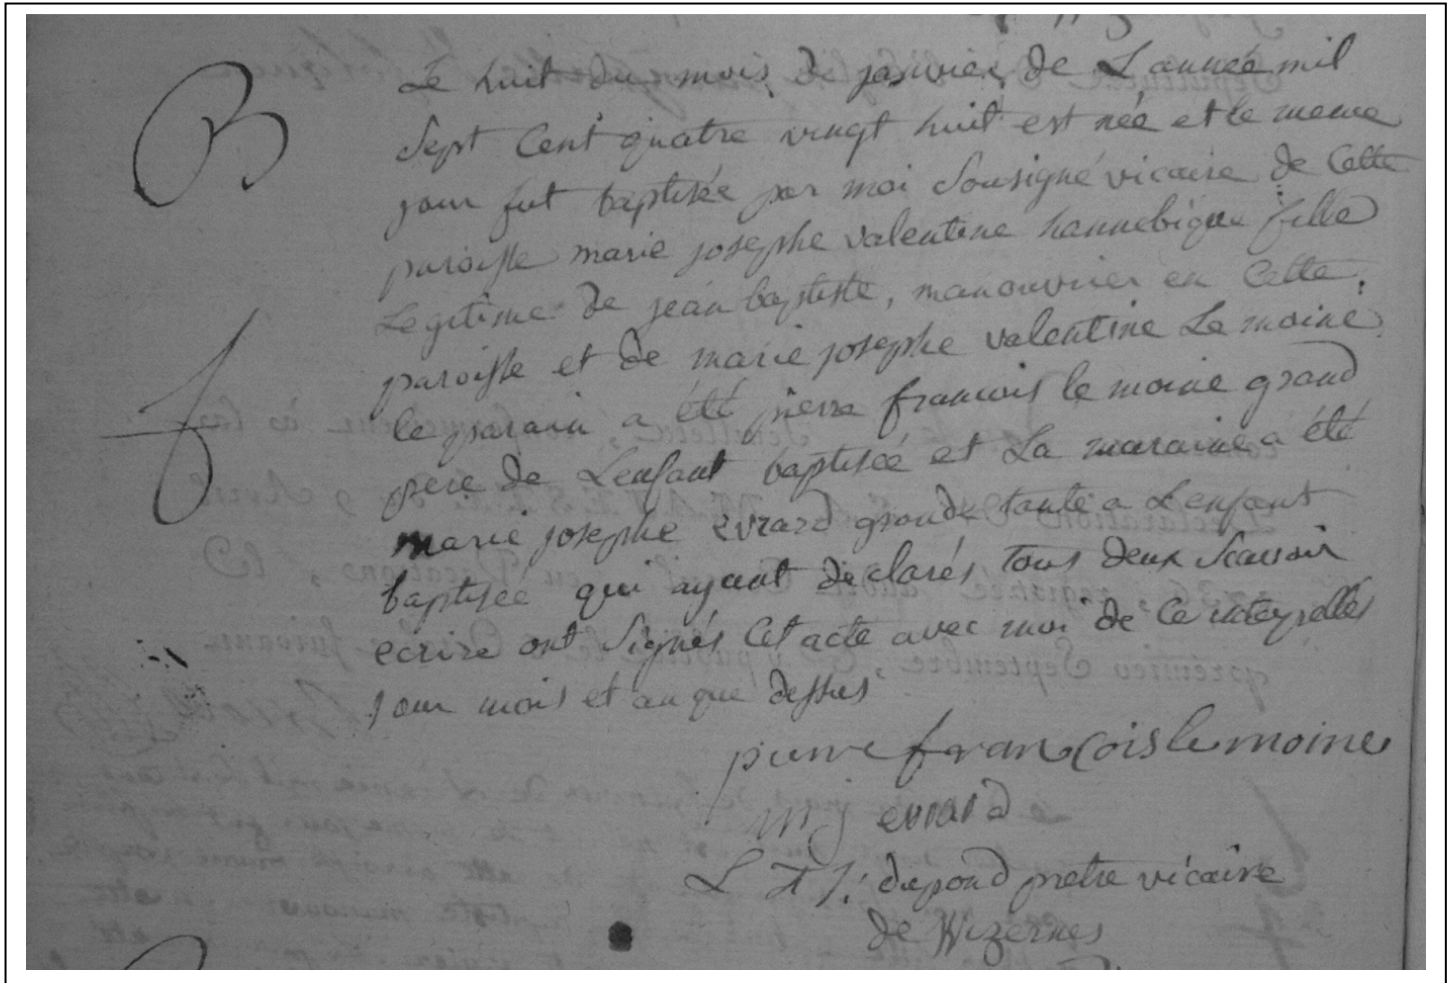 B
Le huit du mois de janvier de L année mil
Sept Cent quatre vingt huit est née et le meme
jour fut baptisée par moi Sousigné vicaire de Cette
paroisse marie josephe valentine hannebique fille
Legitime de jean baptiste, manouvrier en Cette
paroisse et de marie josephe valentine Le moine
le parain a été pierre francois le moine grand
pere de Lenfant baptisée et La maraine a été
marie josephe evrard grande tante a Lenfant
baptisée qui ayant declarés tous deux Scavoir
ecrire ont Signés Cet acte avec moi de Ce interpellés
jour mois et an que dessus
pierre francois le moine
m j evrard
L J: dupond pretre vicaire
de Wizernes
f